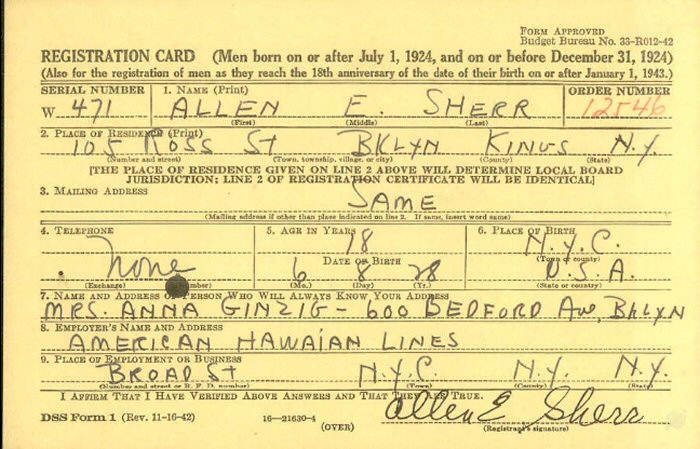 FORM APPROVED
Budget Bureau No. 33-R012-42
REGISTRATION CARD (Men born on or after July 1, 1924, and on or before December 31, 1924)
(Also for the registration of men as they reach the 18th anniversary of the date of their birth on or after January 1, 1943.)
SERIAL NUMBER 1. NAME (Print) ORDER NUMBER
W 471 ALLEN E. SHERR 12546
(First) (Middle) (Last)
2. PLACE OF RESIDENCE (Print)
105 ROSS ST BKLYN KINGS N.Y.
(Number and street) (Town, township, village, or city) (County) (State)
[THE PLACE OF RESIDENCE GIVEN ON LINE 2 ABOVE WILL DETERMINE LOCAL BOARD
JURISDICTION; LINE 2 OF REGISTRATION CERTIFICATE WILL BE IDENTICAL]
3. MAILING ADDRESS
SAME
(Mailing address if other than place indicated on line 2. If same, insert word same)
4. TELEPHONE 5. AGE IN YEARS 6. PLACE OF BIRTH
18 N.Y.C.
DATE OF BIRTH (Town or county)
None 6 8 28 U.S.A.
(Exchange) (Number) (Mo.) (Day) (Yr.) (State or country)
7. NAME AND ADDRESS OF PERSON WHO WILL ALWAYS KNOW YOUR ADDRESS
MRS. ANNA GINZIG - 600 BEDFORD AVE, BKLYN
8. EMPLOYER'S NAME AND ADDRESS
AMERICAN HAWAIAN LINES
9. PLACE OF EMPLOYMENT OR BUSINESS
BROAD ST N.Y.C. N.Y. N.Y.
(Number and street or R. F. D. number) (Town) (County) (State)
I AFFIRM THAT I HAVE VERIFIED ABOVE ANSWERS AND THAT THEY ARE TRUE.
Allen E. Sherr
DSS Form 1 (Rev. 11-16-42) 16—21630-4 (Registrant's signature)
(OVER)